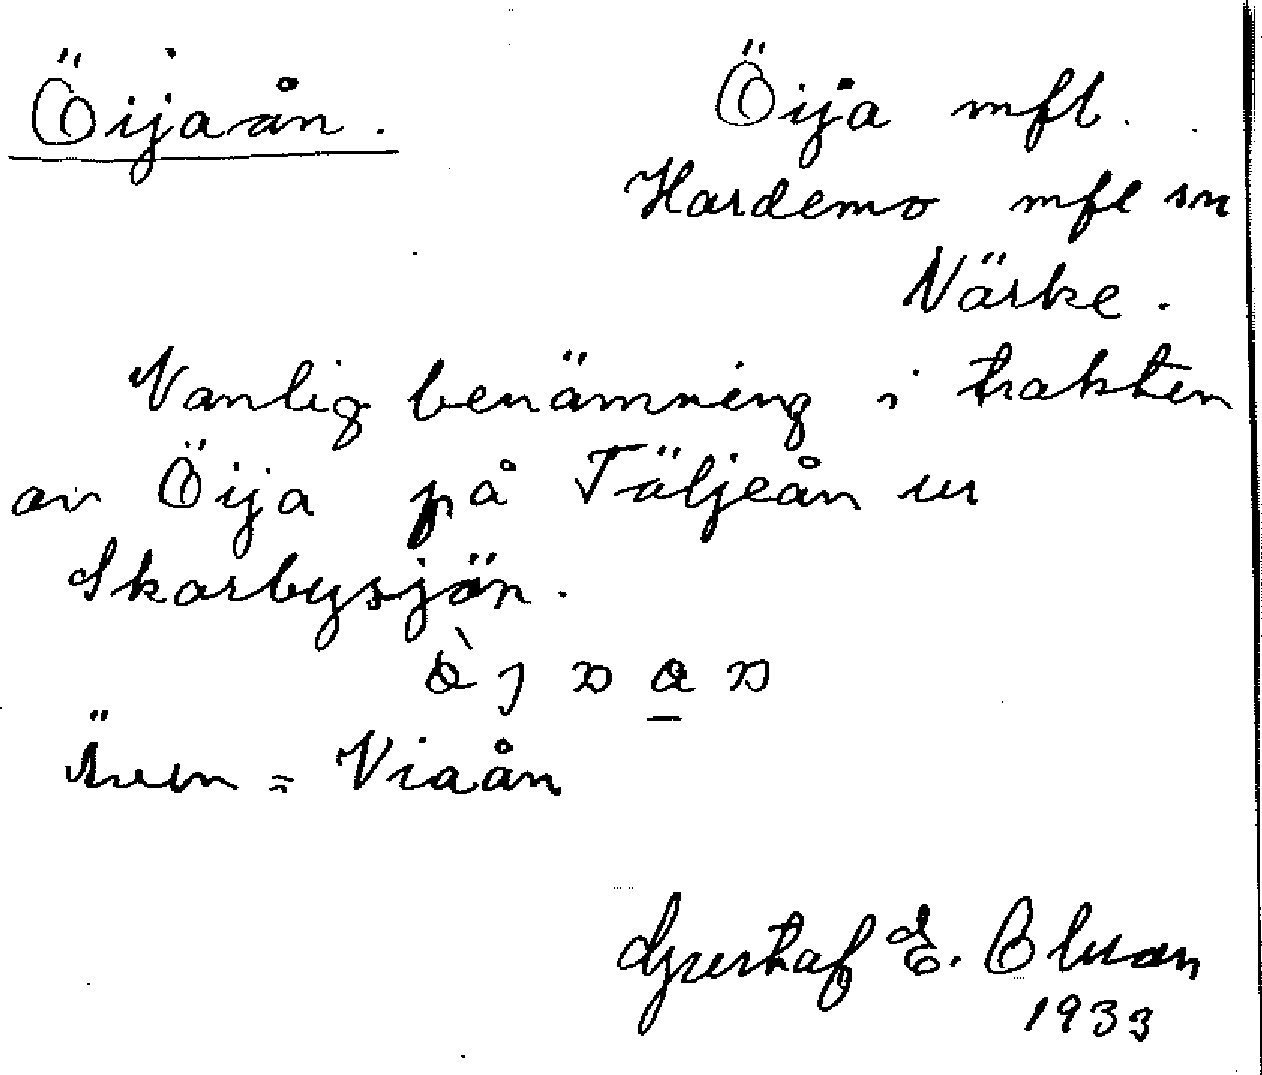 Öijaån.
Öija mfl.
Hardemo mfl sn
Närke.
Vanlig benämning i trakten
av Öija på Täljeån ur
Skarbysjön.
Även = Viaån
Gustaf E.
1933